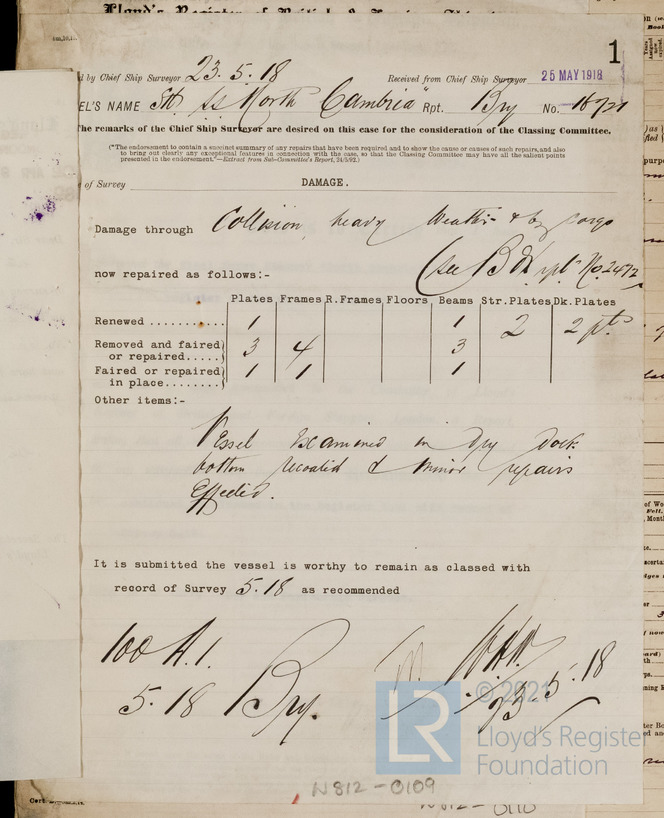 Lloyd's Register of British & Foreign Shipping
1
d by Chief Ship Surveyor 23.5.18 Received from Chief Ship Surveyor 25 MAY 1918
EL'S NAME St. ss "North Cambria" Rpt. Bry No.
The remarks of the Chief Ship Surveyor are desired on this case for the consideration of the Classing Committee.
("The endorsement to contain a succinct summary of any repairs that have been required and to show the cause or causes of such repairs, and also
to bring out clearly any exceptional features in connection with the case, so that the Classing Committee may have all the salient points
presented in the endorsement."—Extract from Sub-Committee's Report, 24/5/92.)
of Survey DAMAGE.
Damage through Collision, heavy Weather & by cargo
(see Bdx rpt No. 2472
now repaired as follows:-
Plates Frames R.Frames Floors Beams Str.Plates Dk.Plates
Renewed .......... 1 1 2 2 pts
Removed and faired
or repaired..... 3 4 3
Faired or repaired
in place........ 1 1 1
Other items:-
Vessel Examined in Dry Dock
bottom recoated & minor repairs
effected.
It is submitted the vessel is worthy to remain as classed with
record of Survey 5.18 as recommended
100 A.1.
5.18 Bry.
23.5.18
© 2021
LR Lloyd's Register
Foundation
N812-0109
N812-0110